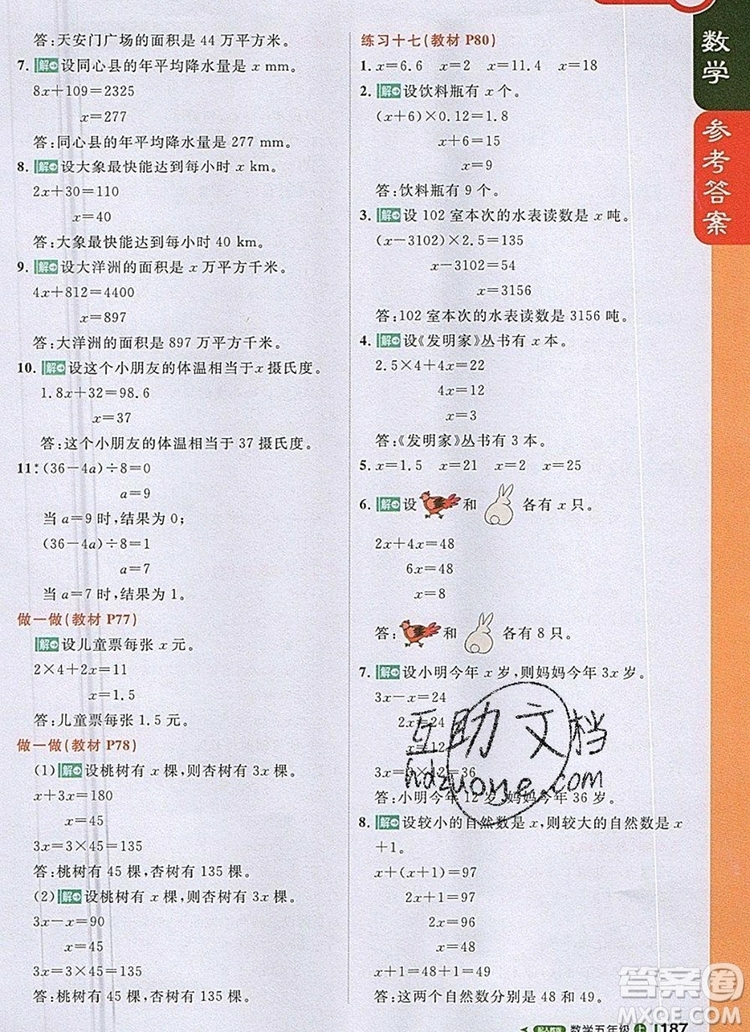 答:天安门广场的面积是 44 万平方米。
7. 解 设同心县的年平均降水量是 x mm。
8x+109=2325
x=277
答:同心县的年平均降水量是 277 mm。
8. 解 设大象最快能达到每小时 x km。
2x+30=110
x=40
答:大象最快能达到每小时 40 km。
9. 解 设大洋洲的面积是 x 万平方千米。
4x+812=4400
x=897
答:大洋洲的面积是 897 万平方千米。
10. 解 设这个小朋友的体温相当于x 摄氏度。
1.8x+32=98.6
x=37
答:这个小朋友的体温相当于 37 摄氏度。
11. (36-4a)÷8=0
a=9
当 a=9 时,结果为 0;
(36-4a)÷8=1
a=7
当 a=7 时,结果为 1。
做一做(教材 P77)
解 设儿童票每张 x 元。
2×4+2x=11
x=1.5
答:儿童票每张 1.5 元。
做一做(教材 P78)
(1) 解 设桃树有 x 棵,则杏树有 3x 棵。
x+3x=180
x=45
3x=3×45=135
答:桃树有 45 棵,杏树有 135 棵。
(2) 解 设桃树有 x 棵,则杏树有 3x 棵。
3x-x=90
x=45
3x=3×45=135
答:桃树有 45 棵,杏树有 135 棵。
练习十七(教材 P80)
1. x=6.6 x=2 x=11.4 x=18
2. 解 设饮料瓶有 x 个。
(x+6)×0.12=1.8
x+6=15
x=9
答:饮料瓶有 9 个。
3. 解 设 102 室本次的水表读数是 x 吨。
(x-3102)×2.5=135
x-3102=54
x=3156
答:102 室本次的水表读数是 3156 吨。
4. 解 设《发明家》丛书有 x 本。
2.5×4+4x=22
4x=12
x=3
答:《发明家》丛书有 3 本。
5. x=1.5 x=21 x=2 x=25
6. 解 设 和 各有 x 只。
2x+4x=48
6x=48
x=8
答: 和 各有 8 只。
7. 解 设小明今年 x 岁,则妈妈今年 3x 岁。
3x-x=24
2x=24
x=12
3x=3×12=36
答:小明今年 12 岁,妈妈今年 36 岁。
8. 解 设较小的自然数是 x,则较大的自然数是 x
+1。
x+(x+1)=97
2x+1=97
2x=96
x=48
x+1=48+1=49
答:这两个自然数分别是 48 和 49。
数学五年级 上 187
数学
参考答案
互助文档
hdzuone.com
答案圈